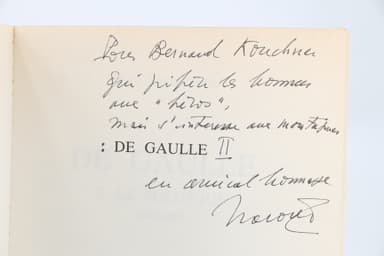 Pour Bernard Kouchner
qui préfère les hommes
aux "héros",
mais s'intéresse aux montagnes
: DE GAULLE II
en amical hommage